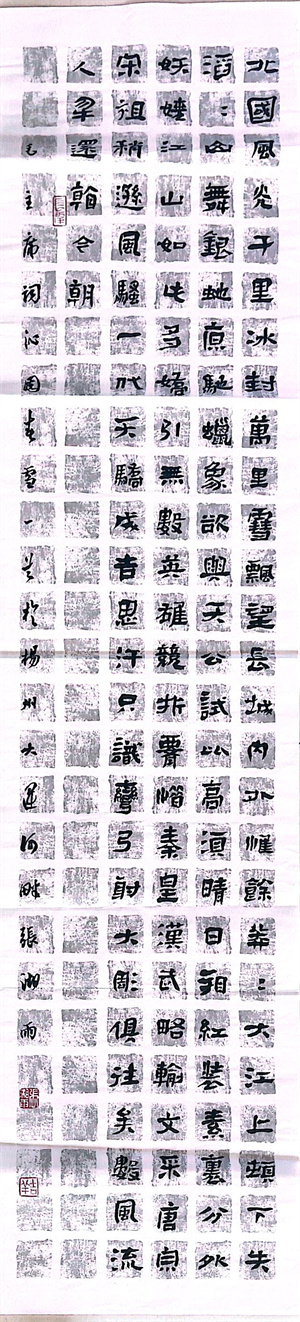 北國風光千里冰封萬里雪飄望長城內外惟餘莽：大江上頓下失
滔：山舞銀蛇原馳蠟象欲與天公試比高須晴日看紅裝素裹分外
妖嬈江山如此多嬌引無數英雄競折腰惜秦皇漢武略輸文采唐宗
宋祖稍遜風騷一代天驕成吉思汗只識彎弓射大雕俱往矣數風流
人物還看今朝
毛主席詞沁園春雪一首於揚州大運河畔張湘雨